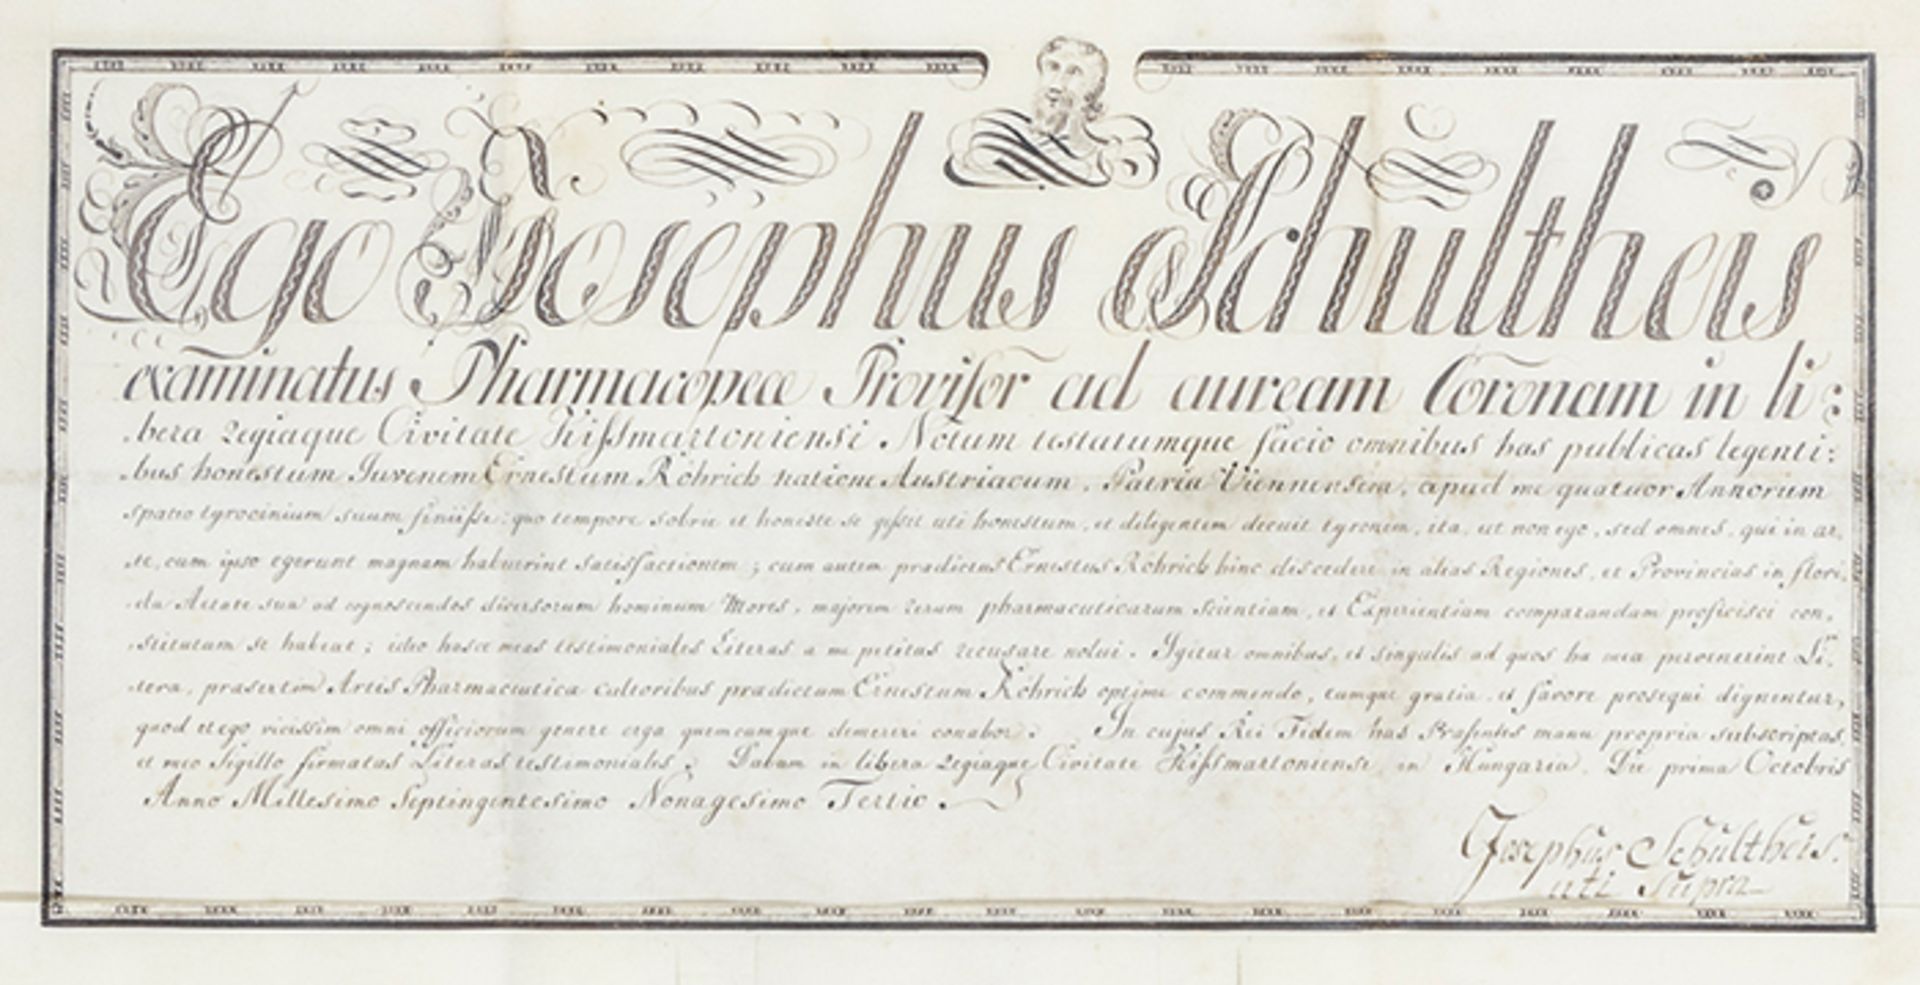 Ego Josephus Schultheis
examinatus Pharmacopeæ Provisor ad auream Coronam in li:
bera Regiaque Civitate Kissmartoniensi Notum testatumque facio omnibus has publicas legenti:
bus honestum Juvenem Ernestum Röhrich natione Austriacum, Patria Viennensem, apud me quatuor Annorum
spatio tyrocinium suum finiisse: quo tempore sobrie et honeste se gessit uti honestum, et diligentem decuit tyronem, ita, ut non ego, sed omnes, qui in ar,
te, cum ipso egerunt magnam habuerint satisfactionem; cum autem prædictus Ernestus Röhrich hinc discedere in alias Regiones, et Provincias in flori,
da Aetate sua ad cognoscendos diversorum hominum Mores, majorem rerum pharmaceuticarum scientiam, et Experientiam comparandam proficisci con,
stitutum se habeat; ideo hasce meas testimoniales Literas a me petitas recusare nolui. Igitur omnibus, et singulis ad quos hæ meæ pervenerint Li,
teræ, præsertim Artis Pharmaceuticæ cultoribus prædictum Ernestum Röhrich optime commendo, eumque gratia, et favore prosequi dignentur,
quod et ego vicissim omni officiorum genere erga quemcumque demereri conabor. In cujus Rei Fidem has Præsentes manu propria subscriptas,
et meo Sigillo firmatas Literas testimoniales. Datum in libera Regiaque Civitate Kissmartoniensi in Hungaria. Die prima Octobris
Anno Millesimo Septingentesimo Nonagesimo Tertio.
Josephus Schultheis.
uti Supra